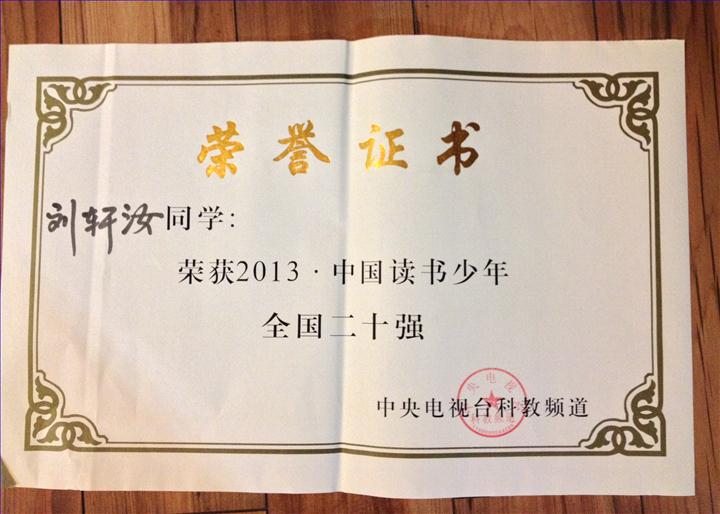 荣誉证书
刘轩汝同学:
荣获2013·中国读书少年
全国二十强
中央电视台科教频道
科教频道